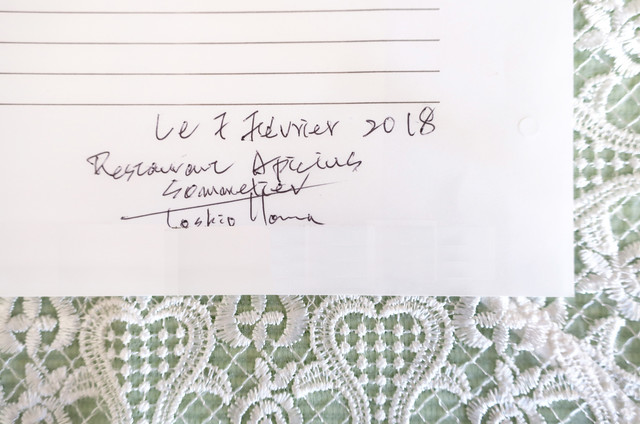 Le 7 Février 2018
Restaurant Apicius
Sommelier
Toshio